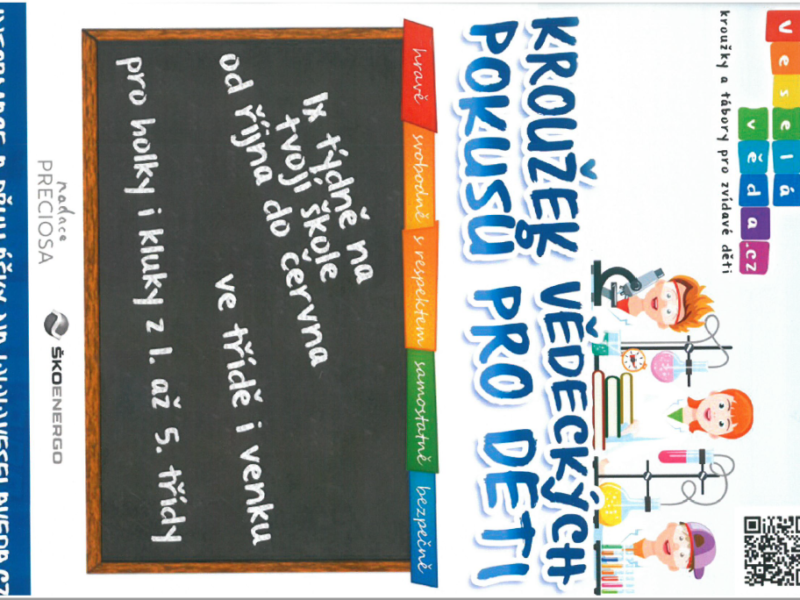 veselá
věda.cz
kroužky a tábory pro zvídavé děti
KROUŽEK VĚDECKÝCH
POKUSŮ PRO DĚTI
hravě svobodně s respektem samostatně bezpečně
1x týdně na
tvojí škole
od října do června
ve třídě i venku
pro holky i kluky z 1. až 5. třídy
nadace
PRECIOSA
ŠKOENERGO